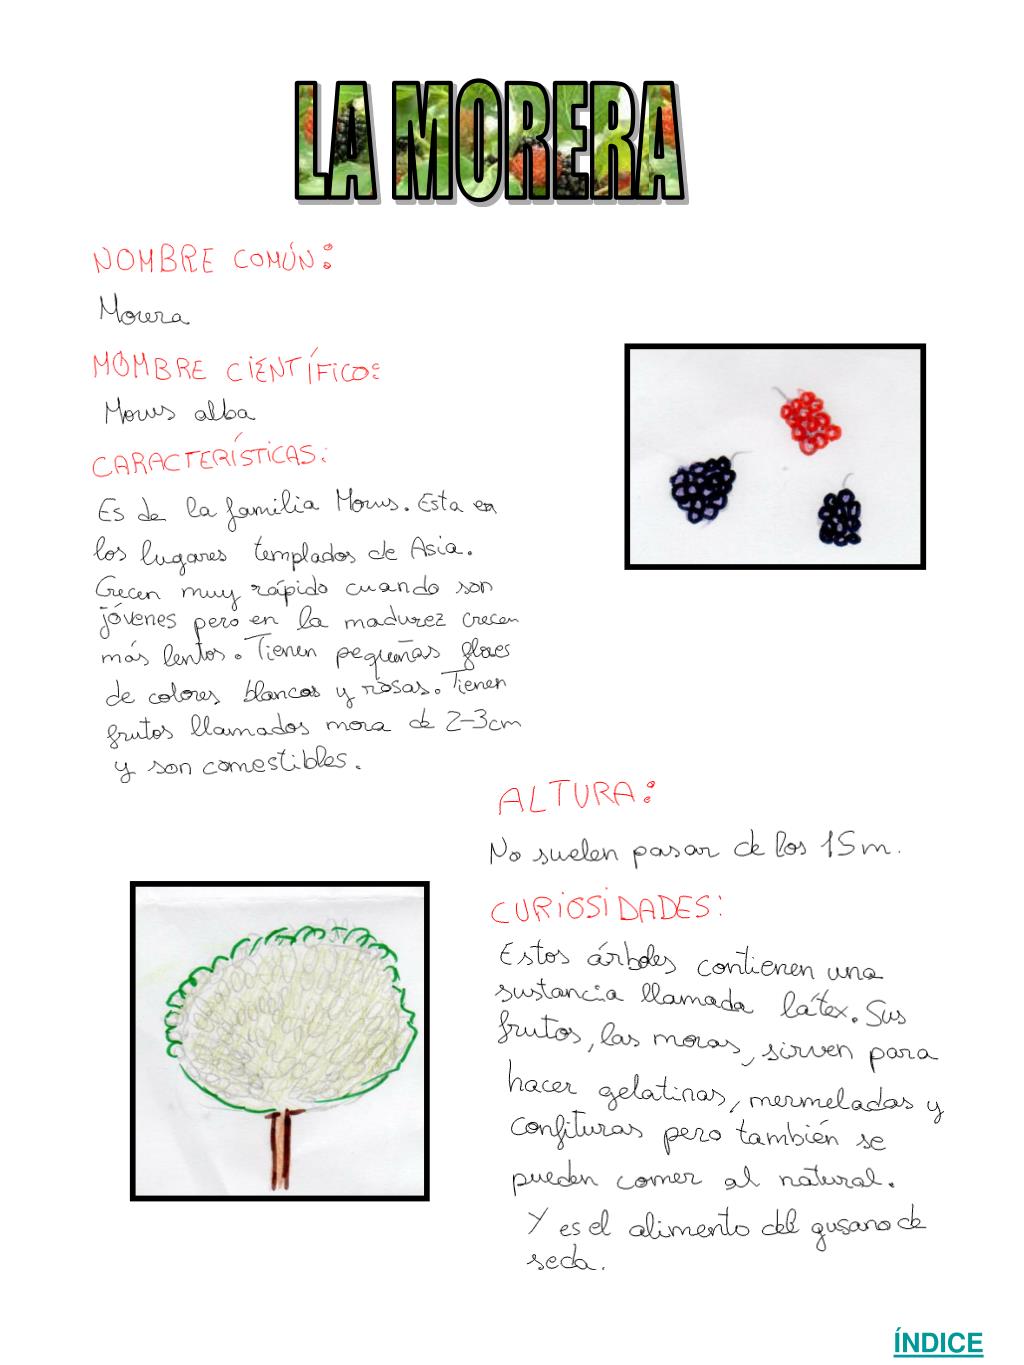 LA MORERA
NOMBRE COMÚN:
Morera
NOMBRE CIENTÍFICO:
Morus alba
CARACTERÍSTICAS:
Es de la familia Morus. Esta en
los lugares templados de Asia.
Crecen muy rápido cuando son
jóvenes pero en la madurez crecen
más lentos. Tienen pequeñas flores
de colores blancos y rosas. Tienen
frutos llamados mora de 2-3cm
y son comestibles.
ALTURA:
No suelen pasar de los 15m.
CURIOSIDADES:
Estos árboles contienen una
sustancia llamada látex. Sus
frutos, las moras, sirven para
hacer gelatinas, mermeladas y
confituras pero también se
pueden comer al natural.
Y es el alimento del gusano de
seda.
ÍNDICE